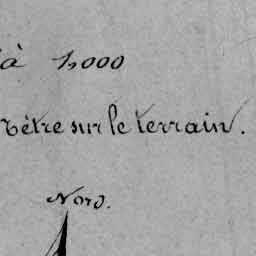 à 1,000
mètre sur le terrain.
Nord.